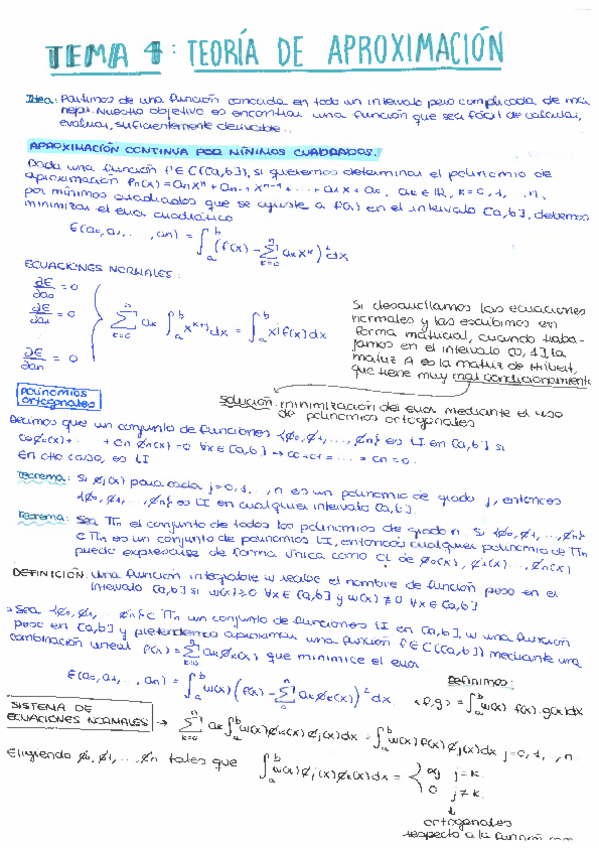 TEMA 4: TEORÍA DE APROXIMACIÓN
Idea: Partimos de una función conocida en todo un intervalo pero complicada de
Nuestro objetivo es encontrar una función que sea fácil de calcular,
evaluar, suficientemente derivable...
APROXIMACIÓN CONTINUA POR MÍNIMOS CUADRADOS.
Dada una función f∈C([a,b]), si queremos determinar el polinomio de
aproximación Pn(x)=anxⁿ+an-1xⁿ⁻¹+...+a1x+a0, ak∈IR, k=0,1,...,n,
por mínimos cuadrados que se ajuste a f(x) en el intervalo [a,b], debemos
minimizar el error cuadrático
E(a0,a1,...,an) = ∫ₐᵇ (f(x) - Σₖ₌₀ⁿ akxᵏ)² dx
ECUACIONES NORMALES:
∂E/∂a0 = 0
∂E/∂a1 = 0
∂E/∂an = 0
Σₖ₌₀ⁿ ak ∫ₐᵇ xᵏ⁺ʲ dx = ∫ₐᵇ xʲ f(x) dx
Si desarrollamos las ecuaciones
normales y las escribimos en
forma matricial, cuando traba-
jamos en el intervalo [0,1], la
matriz A es la matriz de Hilbert,
que tiene muy mal condicionamiento
Solución: minimización del error mediante el uso
de polinomios ortogonales
POLINOMIOS
ortogonales
Decimos que un conjunto de funciones {ø0,ø1,...,øn} es LI en [a,b] si
c0ø0(x)+...+cnøn(x)=0 ∀x∈[a,b] → c0=c1=...=cn=0.
En otro caso, es LI
Teorema: Si øj(x) para cada j=0,1,...,n es un polinomio de grado j, entonces
{ø0,ø1,...,øn} es LI en cualquier intervalo [a,b].
Teorema: Sea Πn el conjunto de todos los polinomios de grado n. Si {ø0,ø1,...,øn}
c Πn es un conjunto de polinomios LI, entonces cualquier polinomio de Πn
puede expresarse de forma única como CL de ø0(x), ø1(x)...,øn(x)
DEFINICIÓN: Una función integrable w recibe el nombre de función peso en el
intervalo [a,b] si w(x)≥0 ∀x∈[a,b] y w(x)≠0 ∀x∈[a,b]
Sea {ø0,ø1,...øn}c Πn un conjunto de funciones LI en [a,b], w una función
peso en [a,b] y pretendemos aproximar una función f∈C([a,b]) mediante una
combinación lineal P(x)=Σₖ₌₀ⁿ akøk(x) que minimice el error
E(a0,a1,...,an) = ∫ₐᵇ w(x) (f(x) - Σ₀ⁿ akøk(x))² dx.
Definimos:
<f,g> = ∫ₐᵇ w(x) f(x).g(x)dx
SISTEMA DE
ECUACIONES NORMALES → Σₖ₌₀ⁿ ak ∫ₐᵇ w(x)øk(x)øj(x)dx = ∫ₐᵇ w(x)f(x)øj(x)dx j=0,1,..,n
Eligiendo ø0,ø1,...,øn tales que ∫ₐᵇ w(x)øj(x)øk(x)dx = { αj j=k.
0 j≠k.
↓
ortogonales
respecto a la función